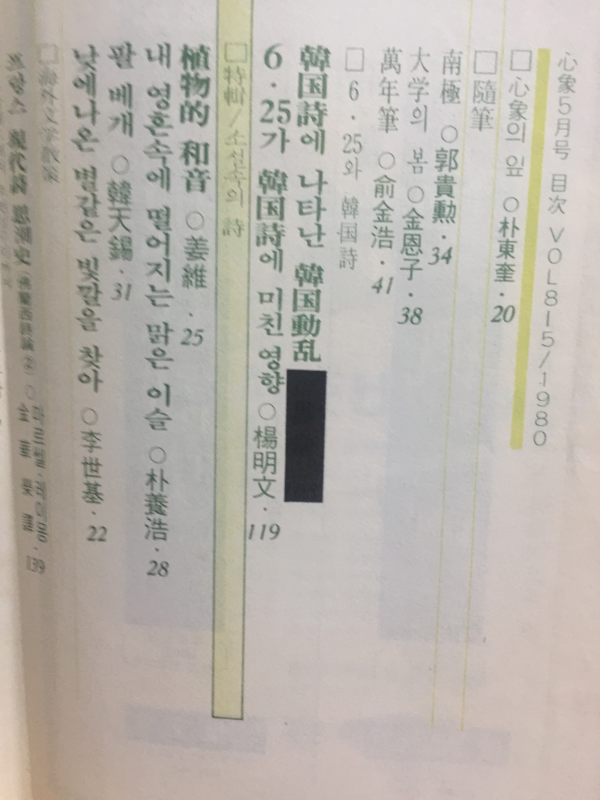 心象5月号 目次 VOL815/1980
□心象의 잎 ○朴東奎·20
□隨筆
南極 ○郭貴勲·34
大学의 봄 ○金恩子·38
萬年筆 ○俞金浩·41
□6·25와 韓国詩
韓国詩에 나타난 韓国動乱
6·25가 韓国詩에 미친 영향 ○楊明文·119
□特輯/소설속의 詩
植物的 和音 ○姜維·25
내 영혼속에 떨어지는 맑은 이슬 ○朴養浩·28
팔 베개 ○韓天錫·31
낮에나온 별같은 빛깔을 찾아 ○李世基·22
□海外文学散策
프랑스 現代詩 思潮史(佛蘭西詩論②) ○마르셀·레이몽·139
金華榮 譯